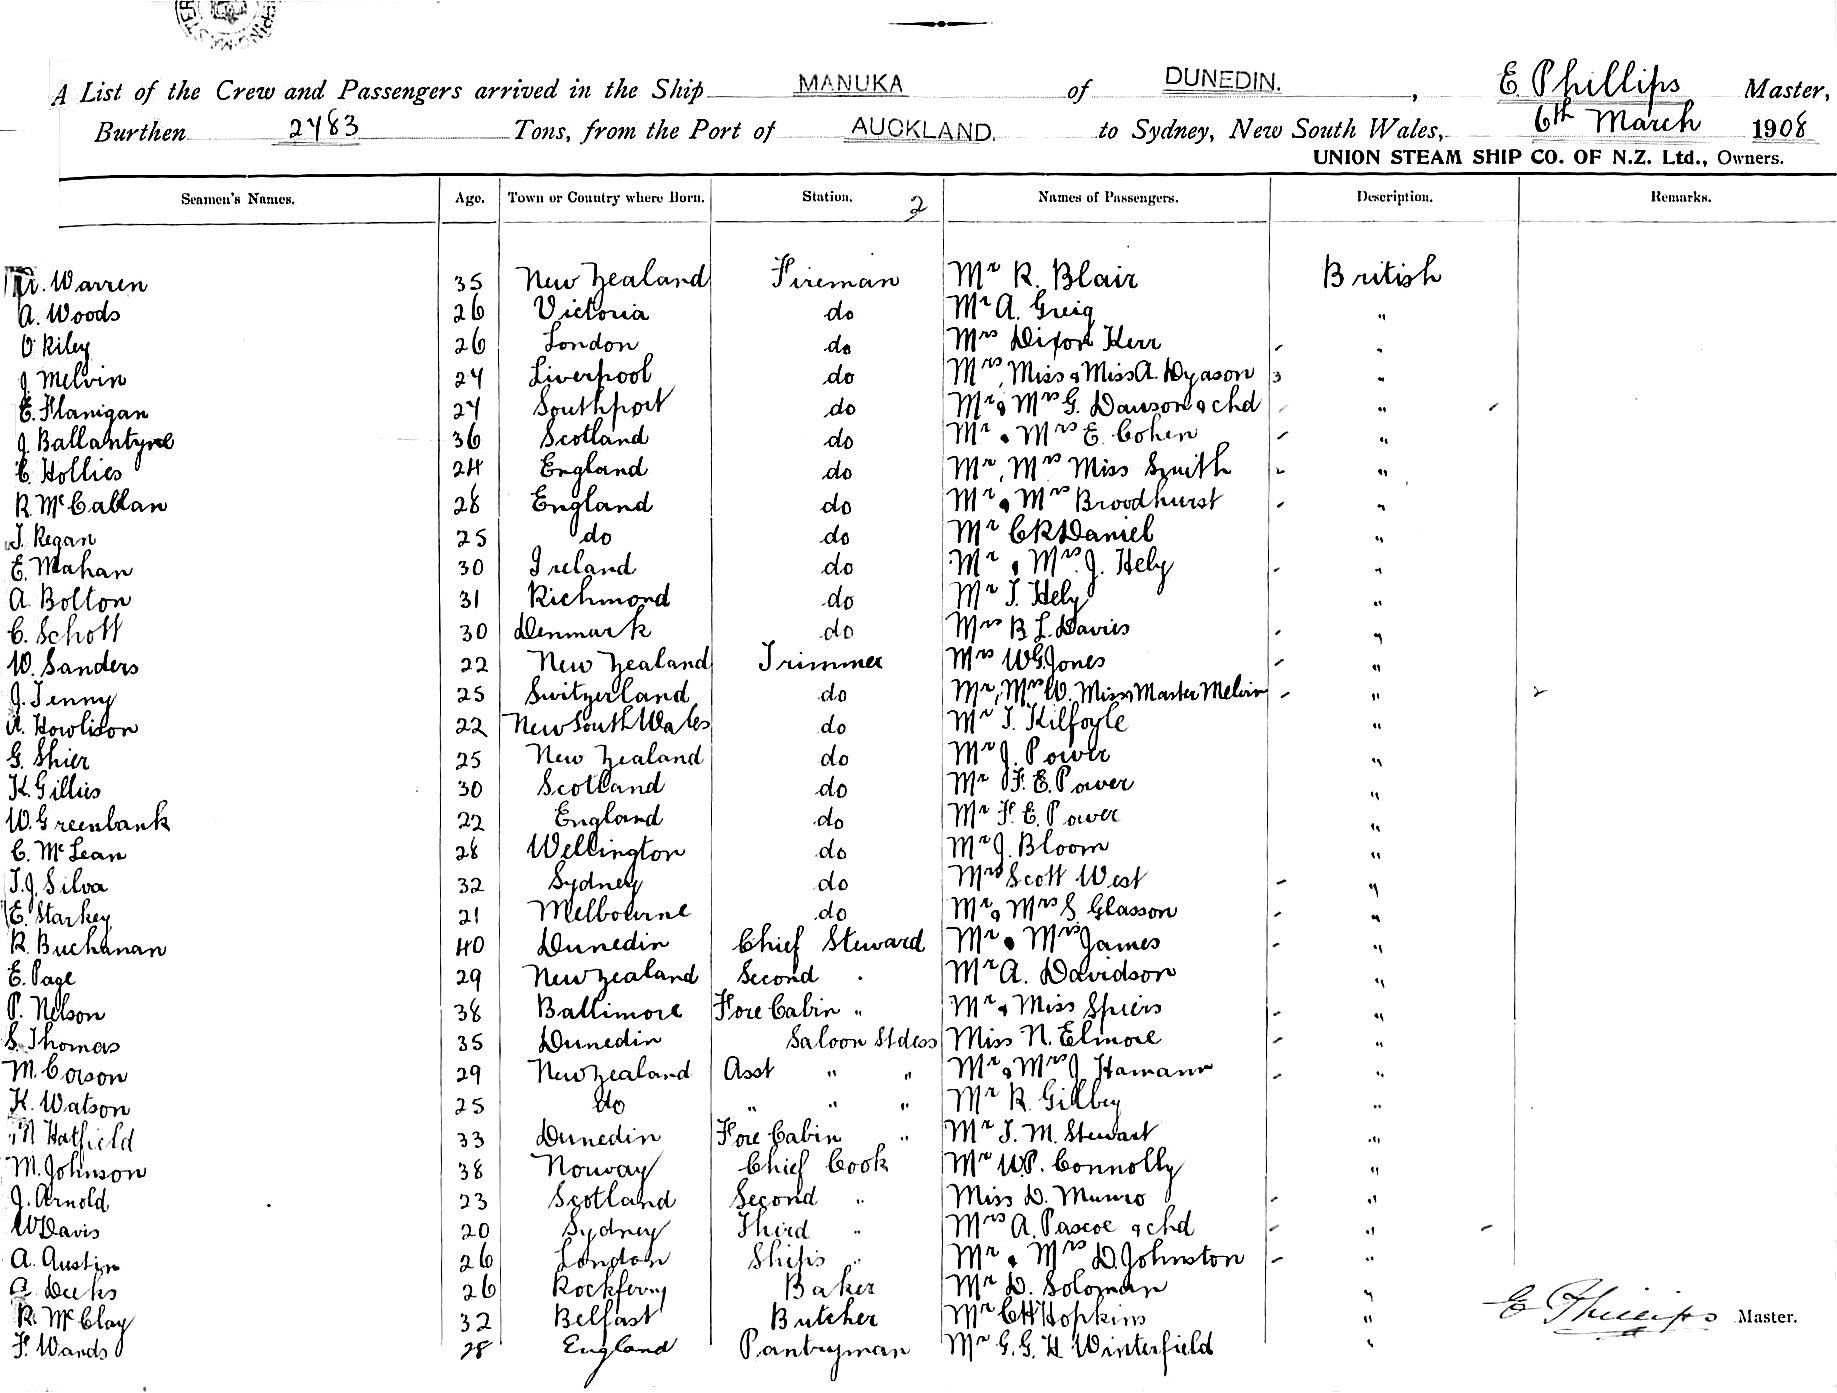 A List of the Crew and Passengers arrived in the Ship MANUKA of DUNEDIN. , E. Phillips Master,
Burthen 2483 Tons, from the Port of AUCKLAND. to Sydney, New South Wales, 6th March 1908
UNION STEAM SHIP CO. OF N.Z. Ltd., Owners.
Seamen's Names. Age. Town or Country where Born. Station. 2 Names of Passengers. Description. Remarks.
Warren 35 New Zealand Fireman Mr R. Blair British
A. Woods 26 Victoria do Mr A. Greig "
O'Riley 26 London do Mrs Dixon Kerr "
J Melvin 24 Liverpool do Mrs, Miss & Miss A. Dyason 3 "
E. Flanigan 24 Southport do Mr & Mrs G. Dawson & chd "
J. Ballantyne 36 Scotland do Mr & Mrs E. Cohen "
C. Hollies 24 England do Mr, Mrs Miss Smith "
R. McCallan 28 England do Mr & Mrs Broodhurst "
J. Regan 25 do do Mr C R Daniel "
E. Mahan 30 Ireland do Mr & Mrs J. Hely "
A. Bolton 31 Richmond do Mr J. Hely "
C. Schott 30 Denmark do Mrs B L. Davies "
W. Sanders 22 New Zealand Trimmer Mrs W G Jones "
J. Jenny 25 Switzerland do Mr, Mrs W. Miss & Master Melvin "
A. Howlison 22 New South Wales do Mr J. Kilfoyle "
G. Shier 25 New Zealand do Mr J. Power "
K. Gillies 30 Scotland do Mr F. E. Power "
W. Greenbank 22 England do Mr F. E. Power "
C. McLean 28 Wellington do Mr J. Bloom "
T. J. Silva 32 Sydney do Mrs Scott West "
E. Starkey 21 Melbourne do Mr & Mrs S Glasson "
R. Buchanan 40 Dunedin Chief Steward Mr & Mrs James "
E. Page 29 New Zealand Second " Mr A. Davidson "
P. Nelson 38 Baltimore Fore Cabin " Mr & Miss Spiers "
S. Thomas 35 Dunedin Saloon Stdess Miss N. Elmore "
M. Corson 29 New Zealand Asst " " Mr & Mrs J Hamann "
K. Watson 25 do " " " Mr R. Gilbey "
N Hatfield 33 Dunedin Fore Cabin " Mr J. M. Stewart "
M. Johnson 38 Norway Chief Cook Mr W. P. Connolly "
J. Arnold 23 Scotland Second " Miss D. Munro "
W Davis 20 Sydney Third " Mrs A. Pascoe & chd "
A. Austin 26 London Ship's " Mr & Mrs D. Johnston "
26 Rockferry Baker Mr D. Soloman "
R. McClay 32 Belfast Butcher Mr C H Hopkins " E Phillips Master.
F. Wands 28 England Pantryman Mr G. G. H Winterfield "